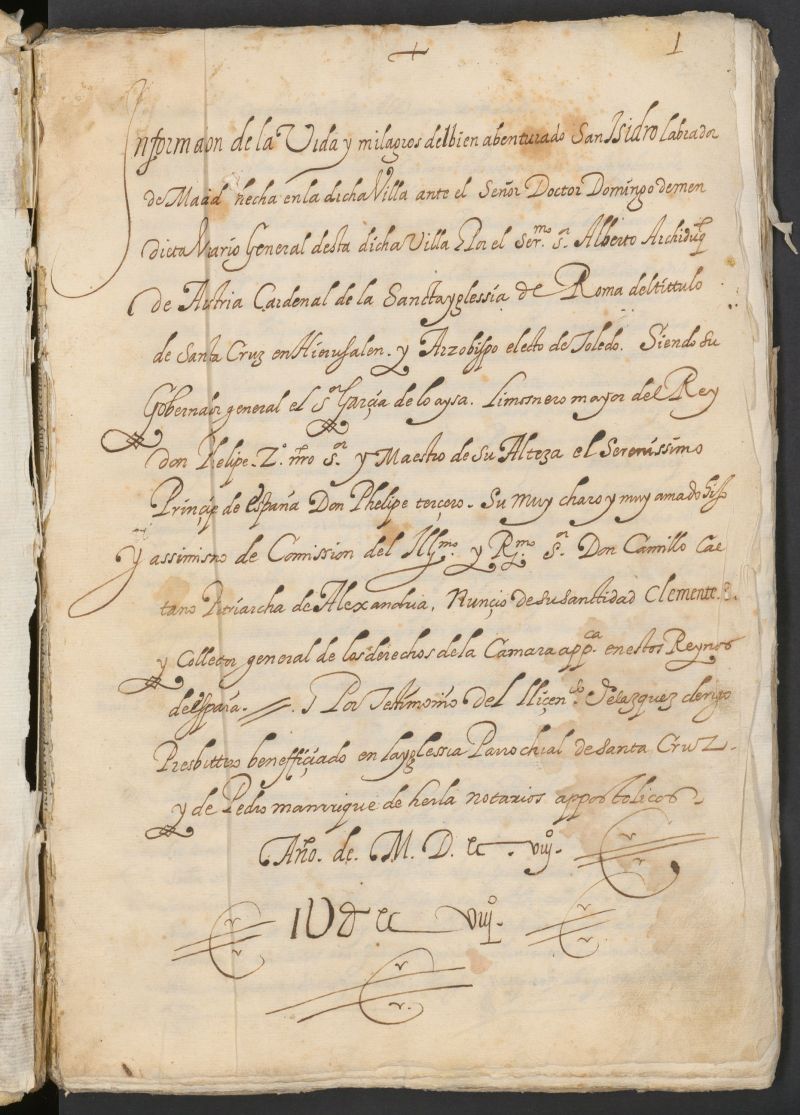 +
1
Informaon de la Vida y milagros del bien abenturado San Isidro labrador
de Maād hecha en la dicha Villa ante el Señor Doctor Domingo de men
dieta Viario General desta dicha Villa Por el Ser.mo s.or Alberto Archiduq
de Astria Cardenal de la Sancta yglessia de Roma del titulo
de Santa Cruz en Hierusalen. y Arzobispo electo de Toledo. Siendo su
Gobernador general el s.or Garçia de loaysa. Limosnero mayor del Rey
don Phelipe. 2.º nr̄o s.or y Maestro de su Alteza el Sereníssimo
Prinçipe de españa Don Phelipe terçero. Su muy charo y muy amado hijo
Y assimismo de Comission del Ill.mo y R.mo s.or Don Camillo Cae
tano Patriarcha de Alexandria, Nunçio de su sanctidad Clemente. 8.
y Collector general de los derechos de la Camara app.ca en estos Reynos
de españa. Por Testimonio del lliçen.do Velazquez clerigo
Presbittero beneffiçiado en la yglessia Parrochial de Santa Cruz.
y de Pedro manrrique de herla notarios appostolicos.
Año. de. M. D. xc. viijº.
IUd xc viijº.